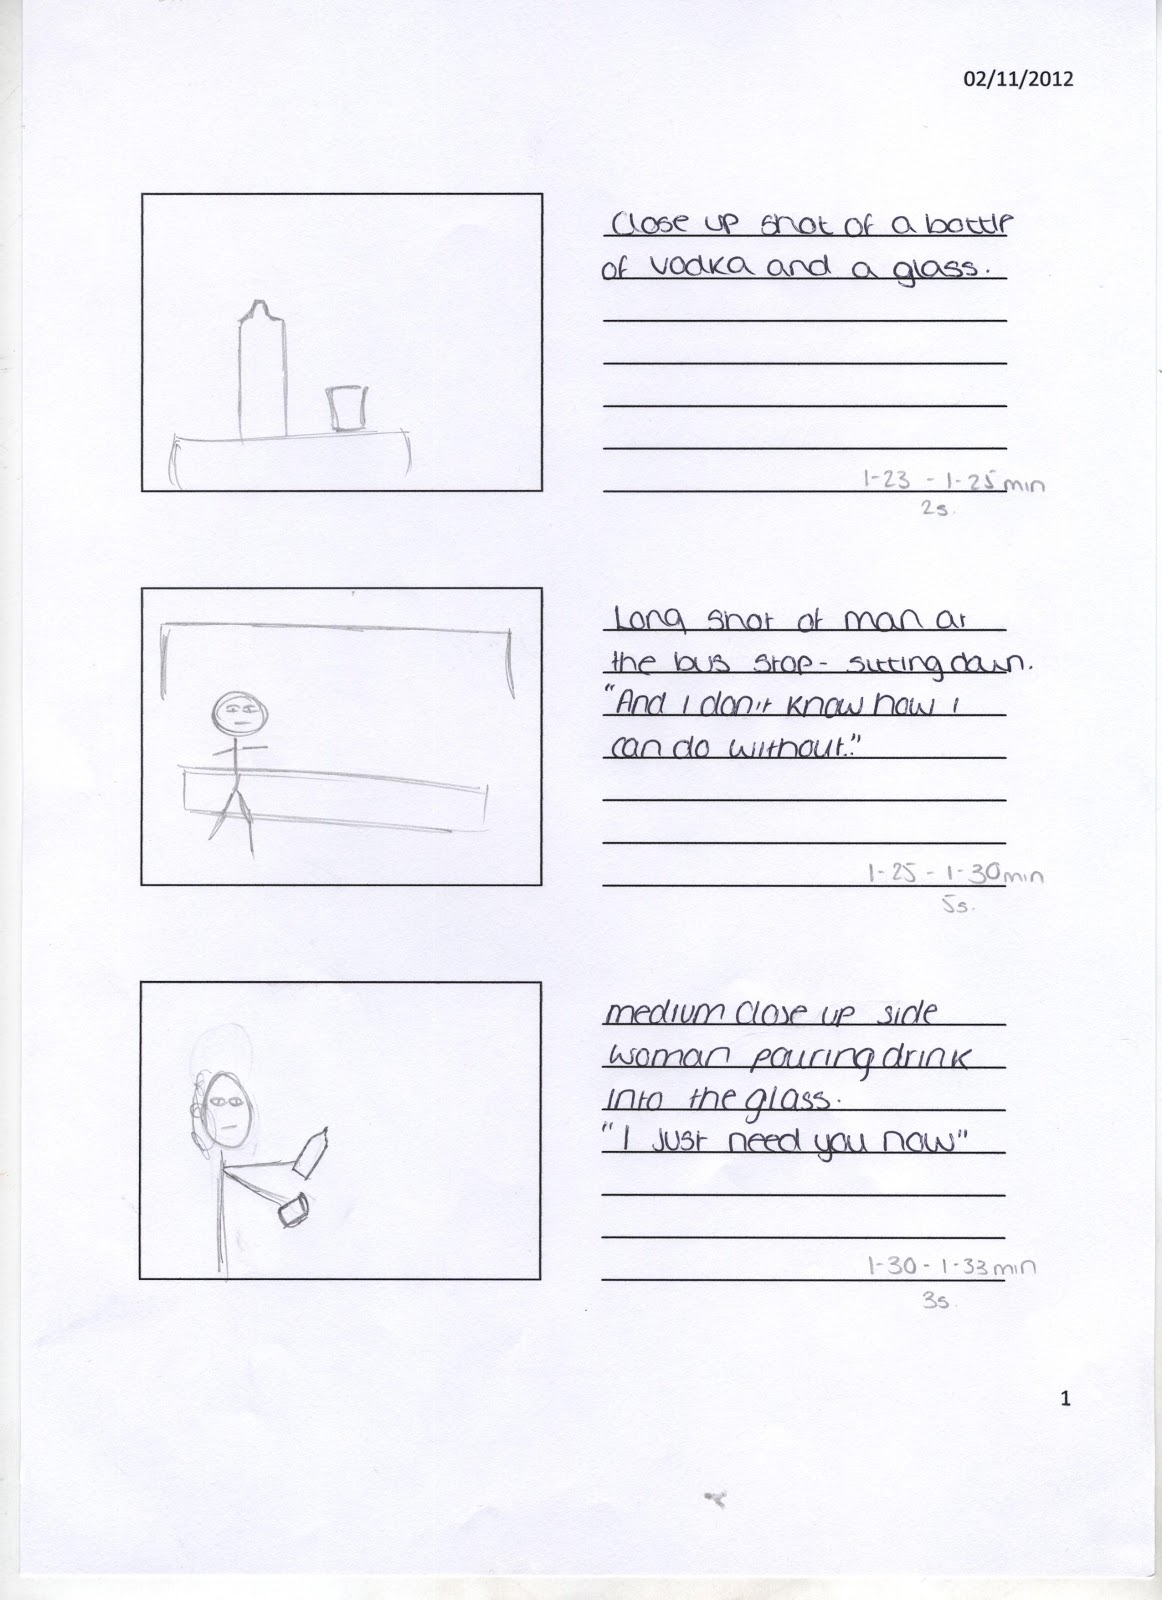 02/11/2012
Close up shot of a bottle
of vodka and a glass.
1-23 - 1-25min
2s.
Long shot of man at
the bus stop - sitting down.
"And I don't know how I
can do without."
1-25 - 1-30min
5s.
medium close up side
woman pouring drink
into the glass.
"I just need you now"
1-30 - 1-33min
3s.
1